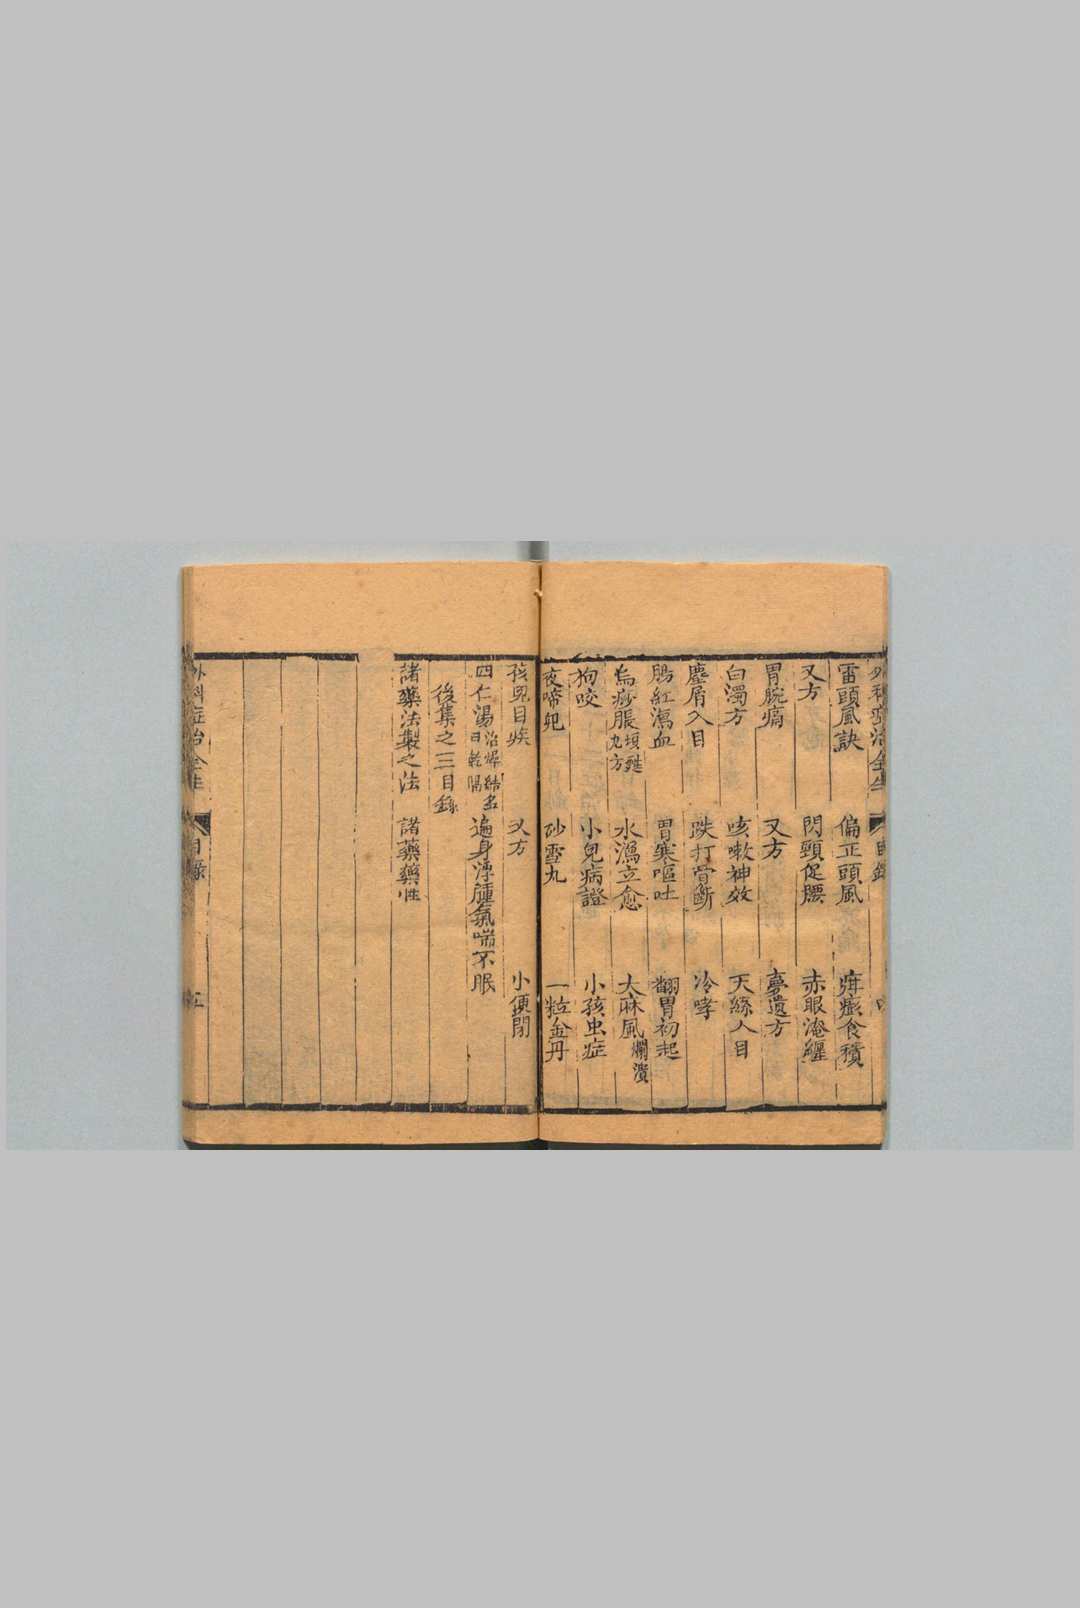 外科症治全生 目錄 四
雷頭風訣 偏正頭風 疳癆食積
又方 閃頸促腰 赤眼淹纏
胃脘痛 又方 夢遺方
白濁方 咳嗽神效 天絲入目
塵屑入目 跌打骨斷 冷哮
腸紅瀉血 胃寒嘔吐 翻胃初起
烏痧脹 水瀉立愈 大麻風爛潰
狗咬 小兒病證 小孩虫症
夜啼兒 砂雪丸 一粒金丹
孩兒目疾 又方 小便閉
四仁湯治燥結名曰乾隔 遍身浮腫氣喘不眠
後集之三目錄
諸藥法製之法 諸藥藥性
外科症治全生 目錄 五